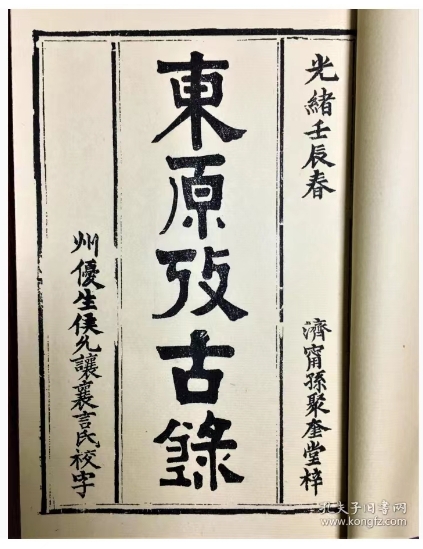 光緒壬辰春
濟甯孫聚奎堂梓
東原攷古錄
州優生侯允讓襄言氏校字
孔夫子旧书网
www.kongfz.com